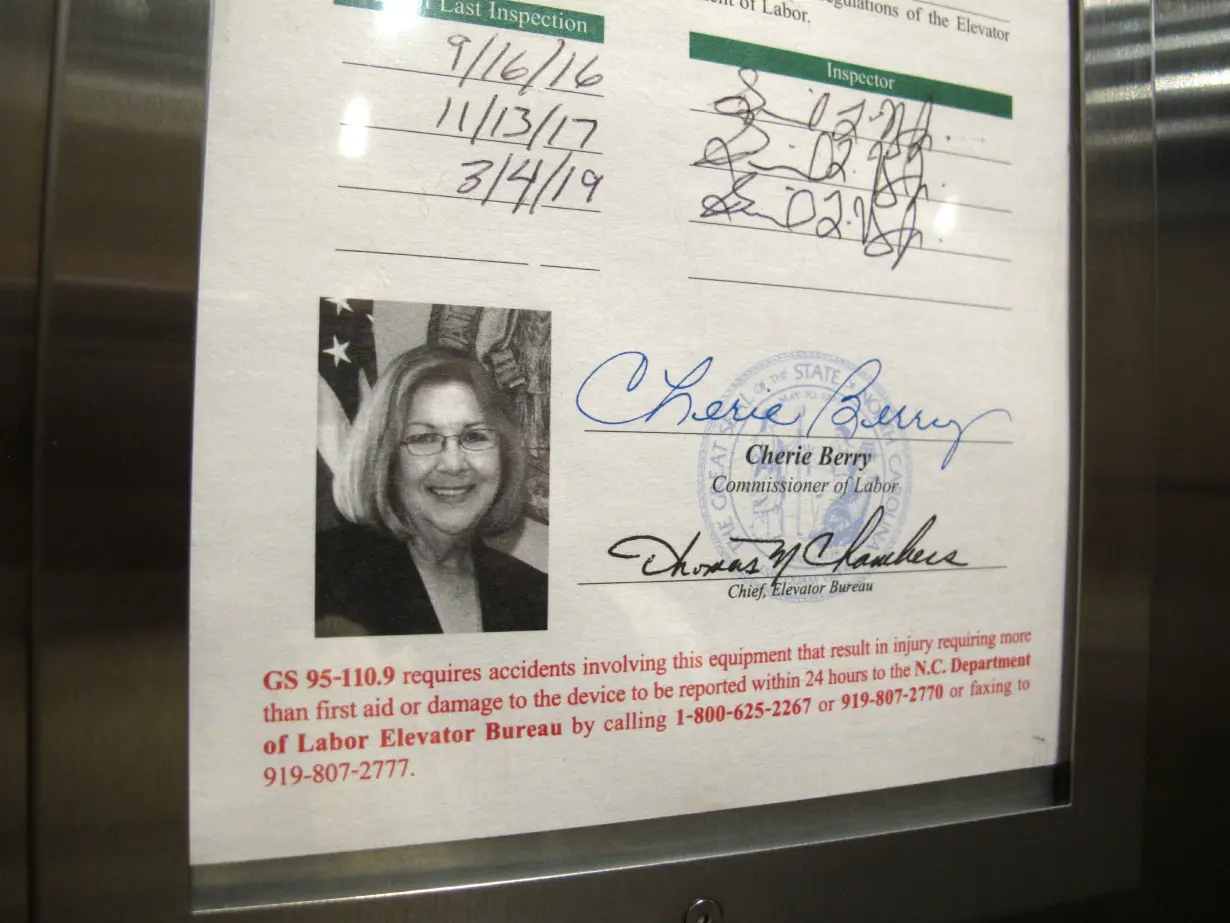 of Last Inspection
9/16/16
11/13/17
3/4/19
regulations of the Elevator
of Labor.
Inspector
Cherie Berry
Cherie Berry
Commissioner of Labor
THE GREAT SEAL OF THE STATE OF NORTH CAROLINA
Thomas N Chambers
Chief, Elevator Bureau
GS 95-110.9 requires accidents involving this equipment that result in injury requiring more
than first aid or damage to the device to be reported within 24 hours to the N.C. Department
of Labor Elevator Bureau by calling 1-800-625-2267 or 919-807-2770 or faxing to
919-807-2777.